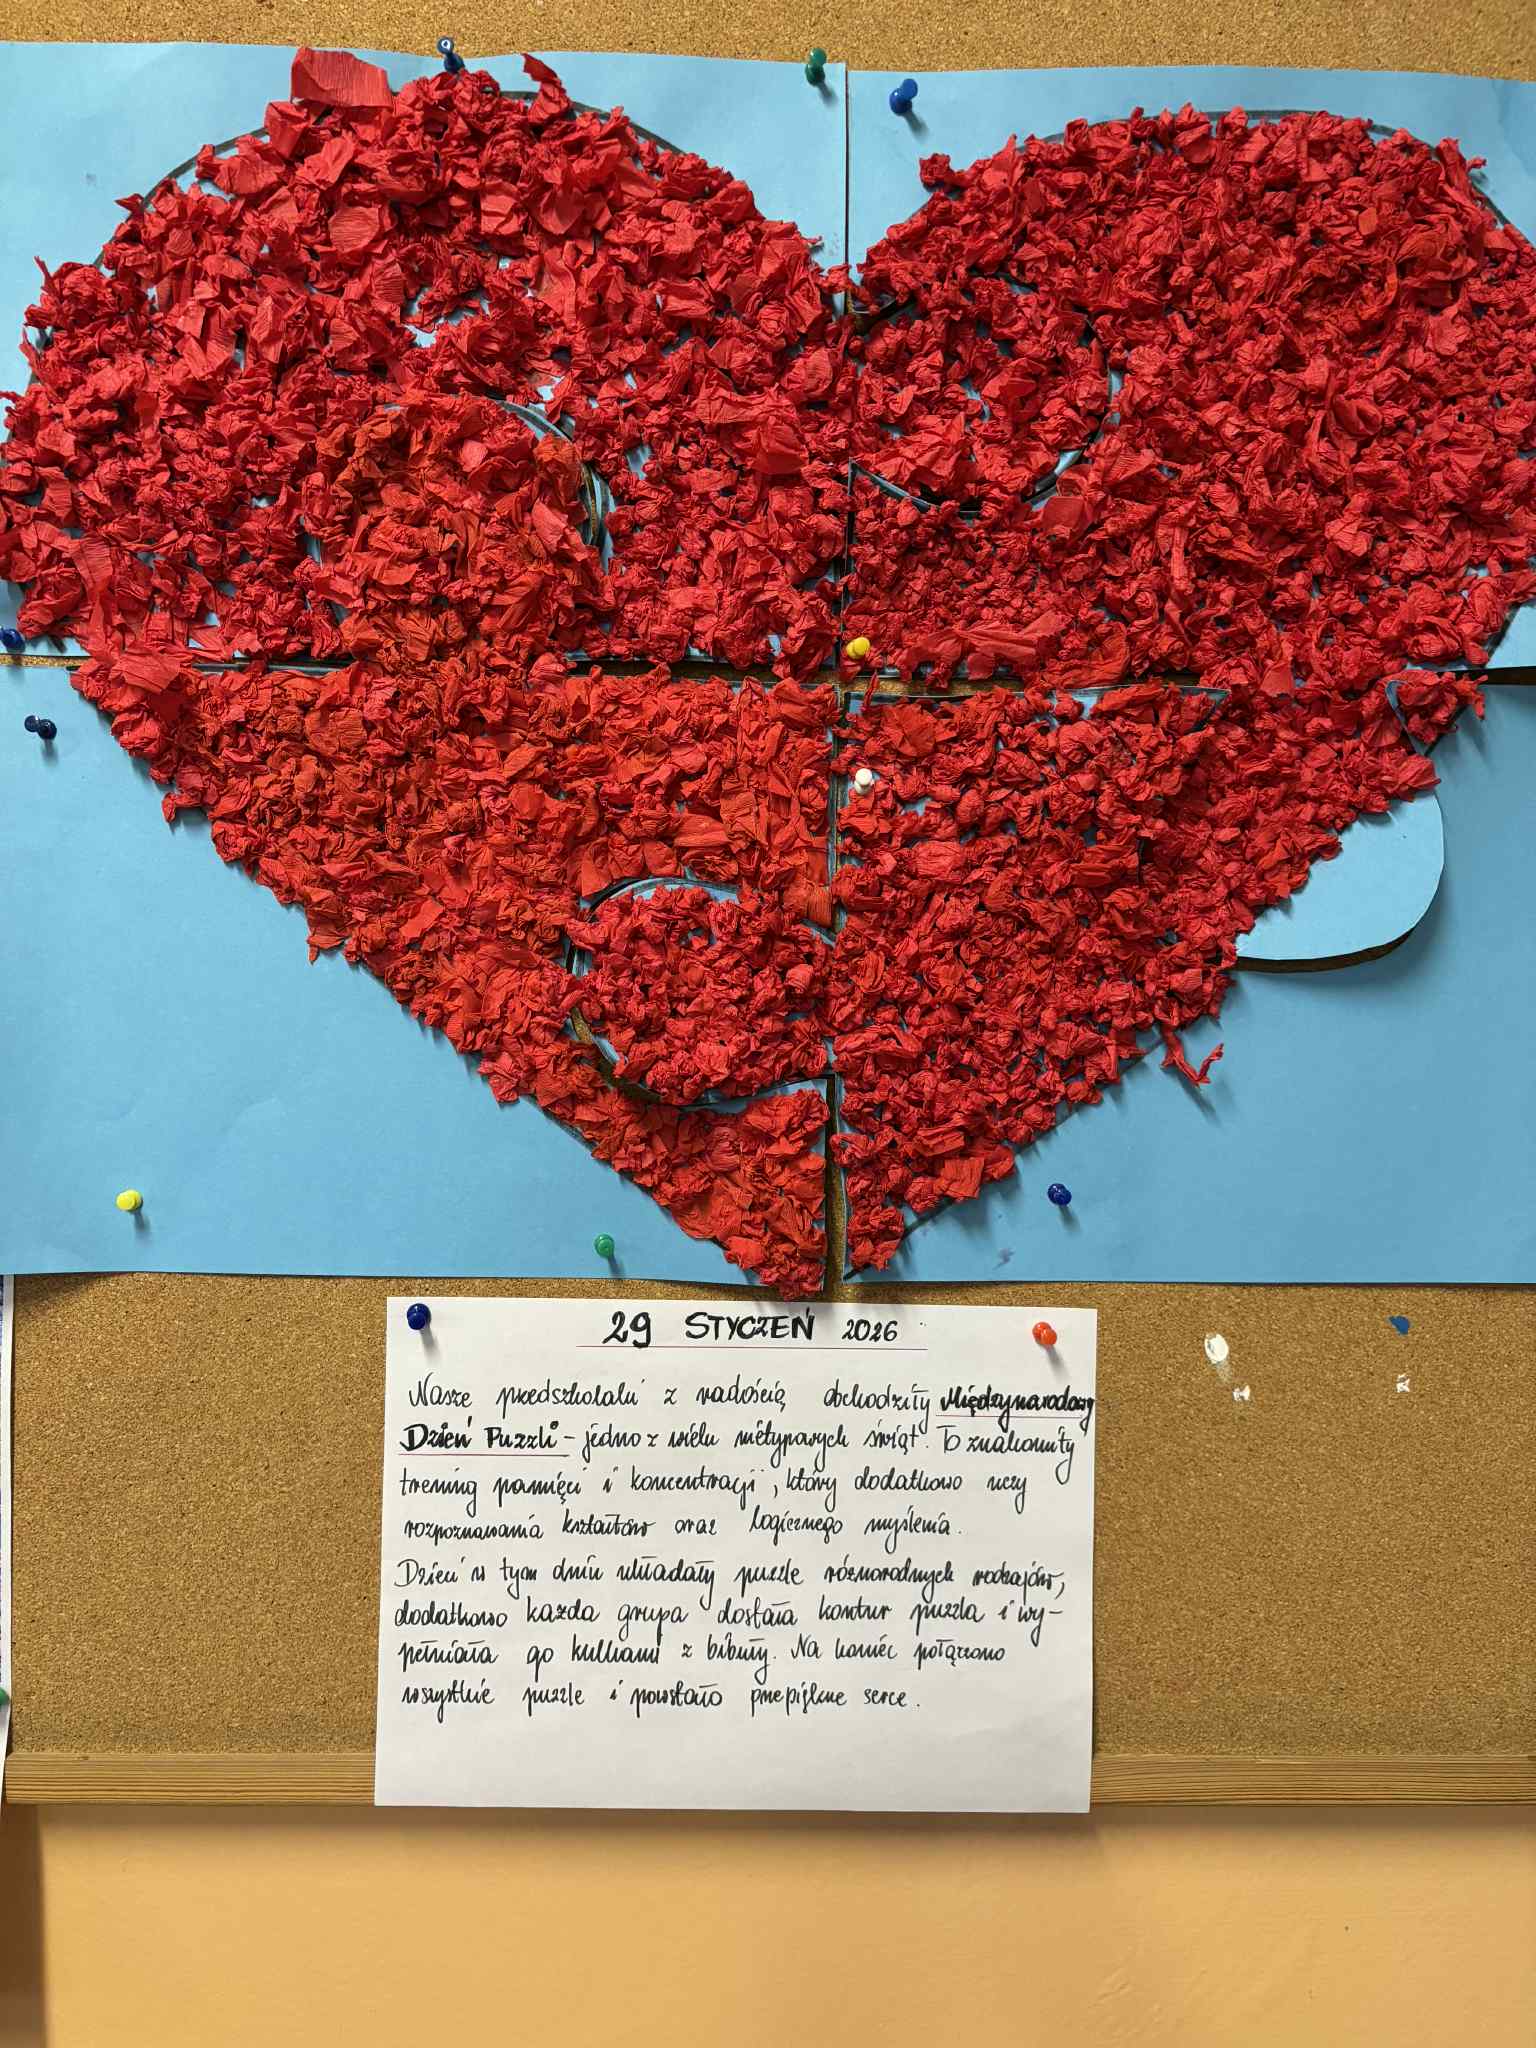 29 STYCZEŃ 2026
Nasze przedszkolaki z radością obchodziły Międzynarodowy
Dzień Puzzli - jedno z wielu nietypowych świąt. To znakomity
trening pamięci i koncentracji, który dodatkowo uczy
rozpoznawania kształtów oraz logicznego myślenia.
Dzieci w tym dniu układały puzzle różnorodnych rodzajów,
dodatkowo każda grupa dostała kontur puzzla i wy-
pełniała go kulkami z bibuły. Na koniec połączono
wszystkie puzzle i powstało przepiękne serce.